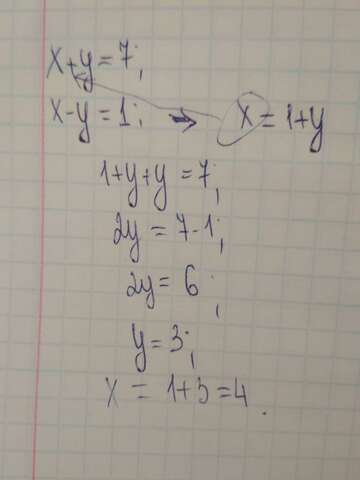 x+y=7;
x-y=1; → x=1+y
1+y+y=7;
2y=7-1;
2y=6;
y=3;
x=1+3=4.